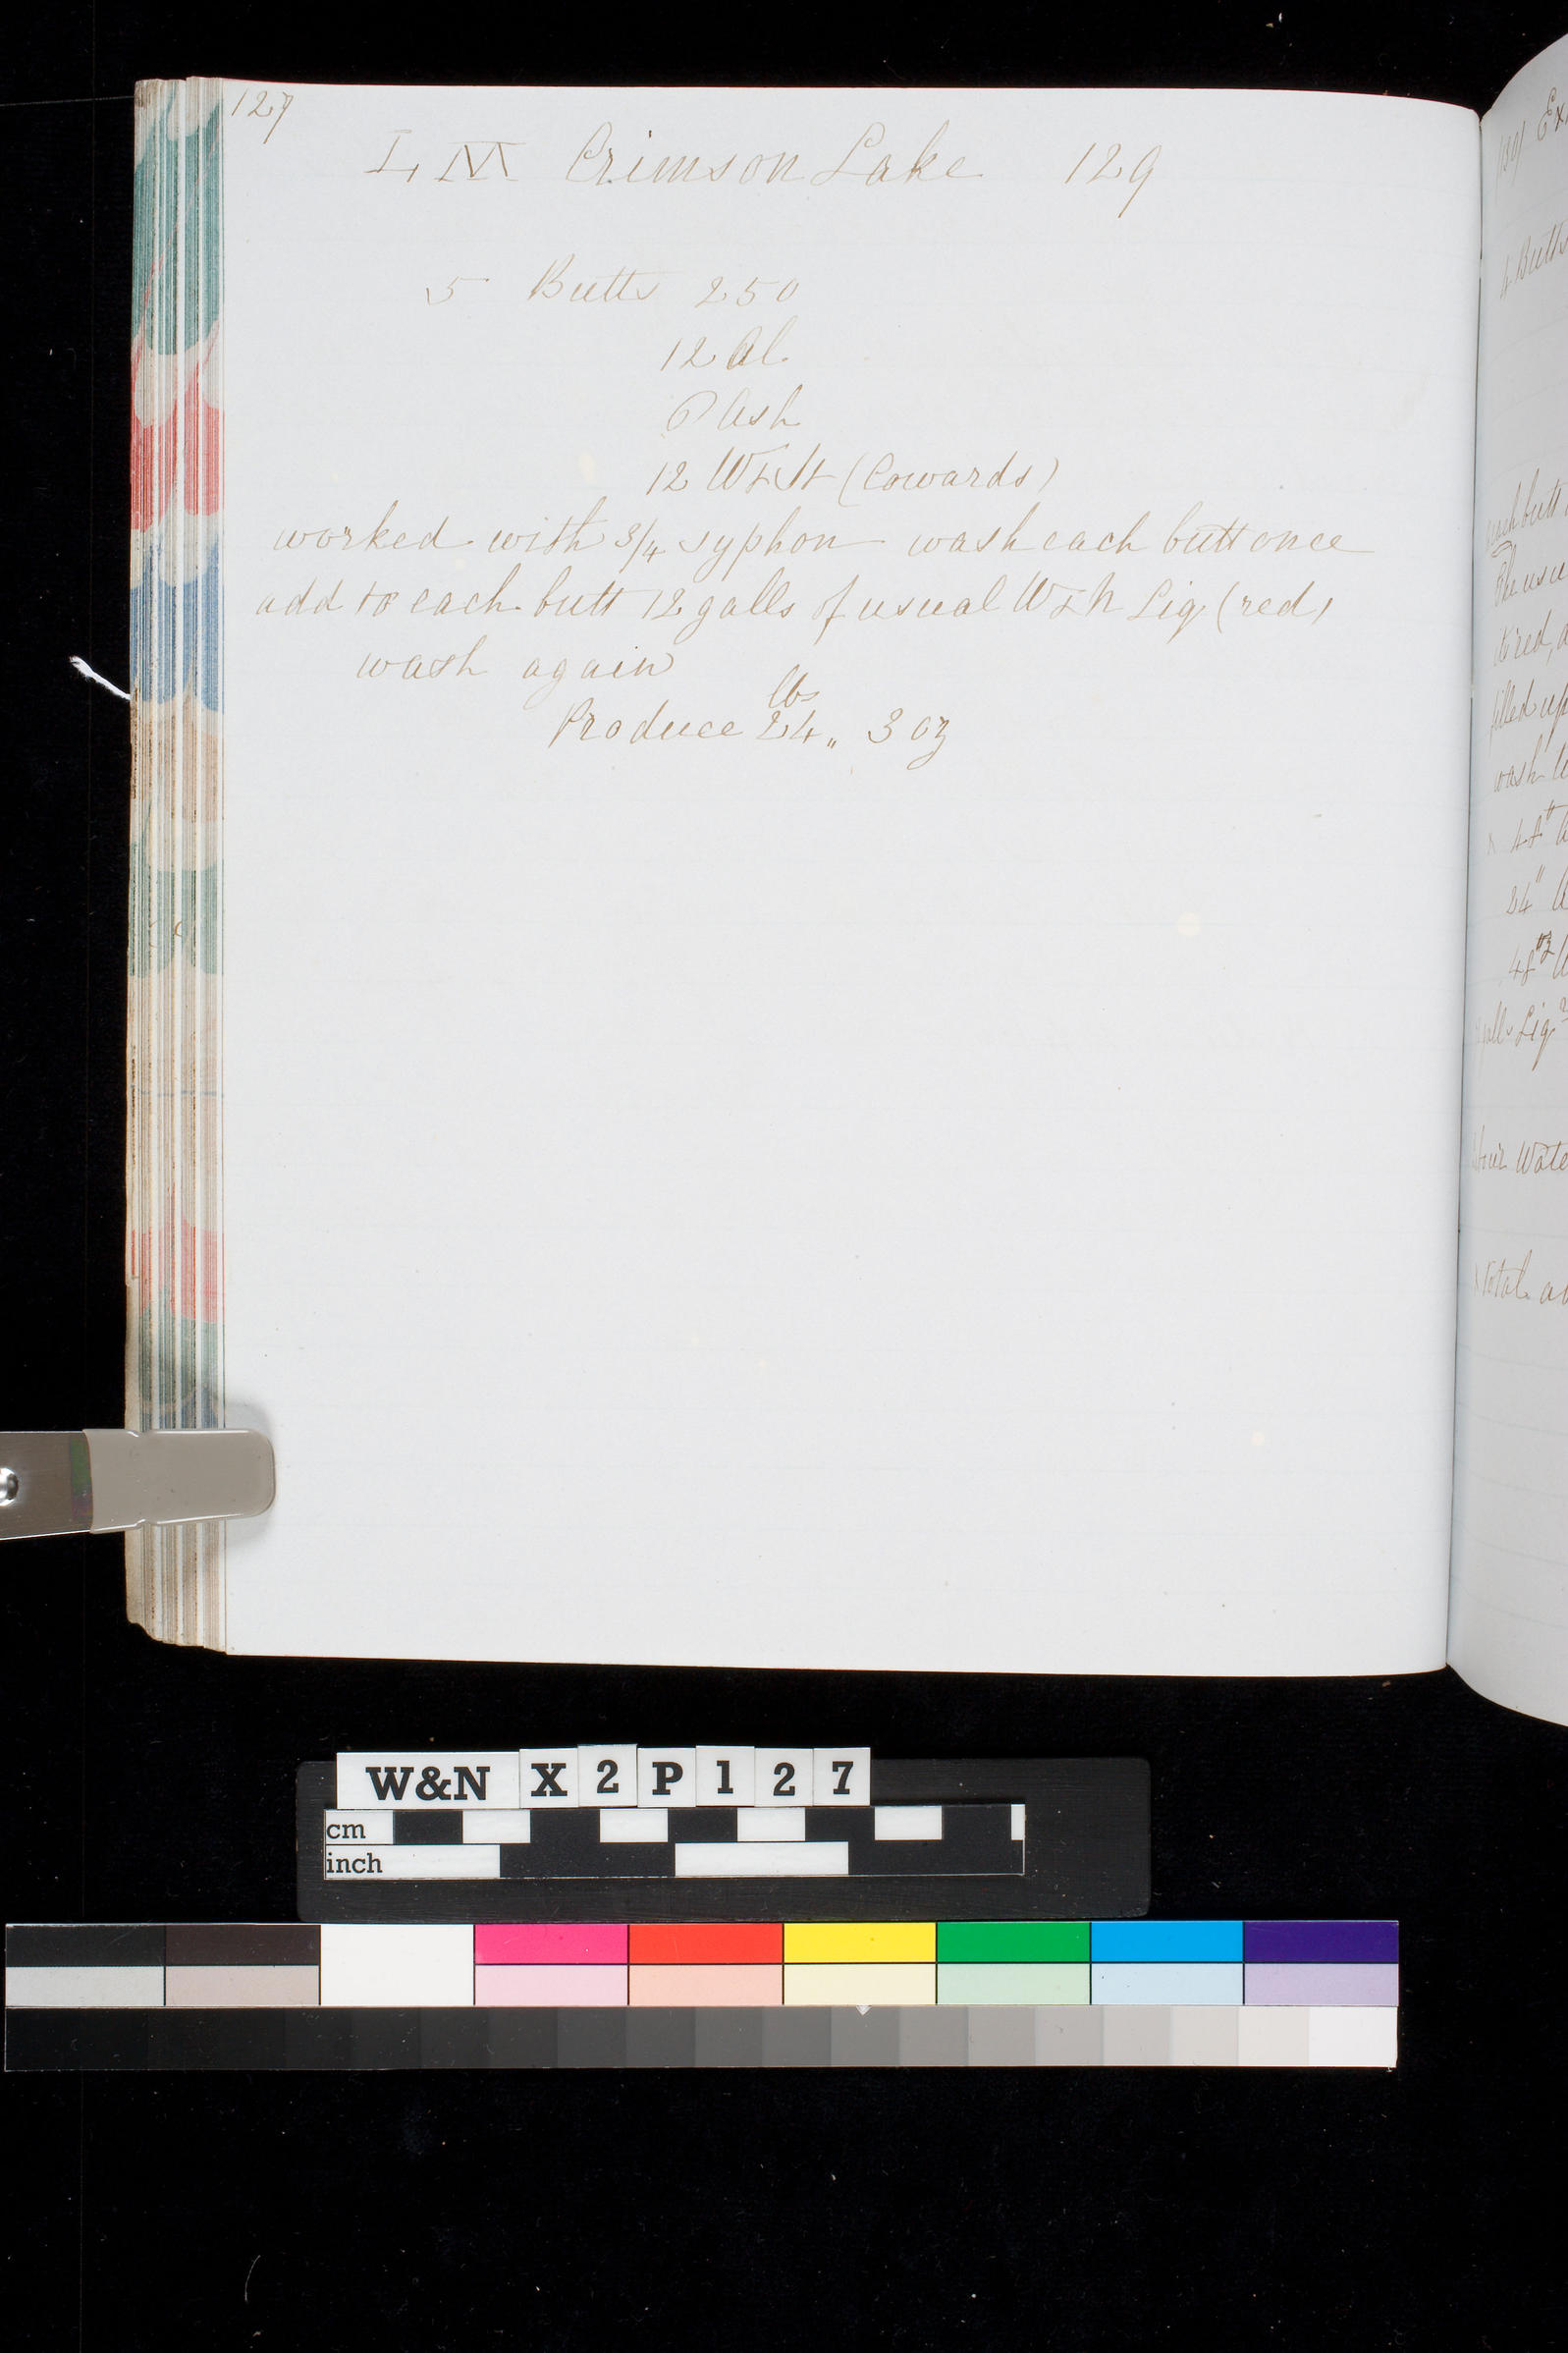 127
Crimson Lake 129
5 Butts 250
12 Al.
6 Ash
12 (Cowards)
worked with 3/4 syphon wash each butt once
add to each butt 12 galls of usual Liq (red)
wash again
lbs
Produce 24 „ 3 oz
4 Butts
each butt
filled up
wash
48
24"
48
Liq
Wate
Total
W&N X 2 P 1 2 7
cm
inch